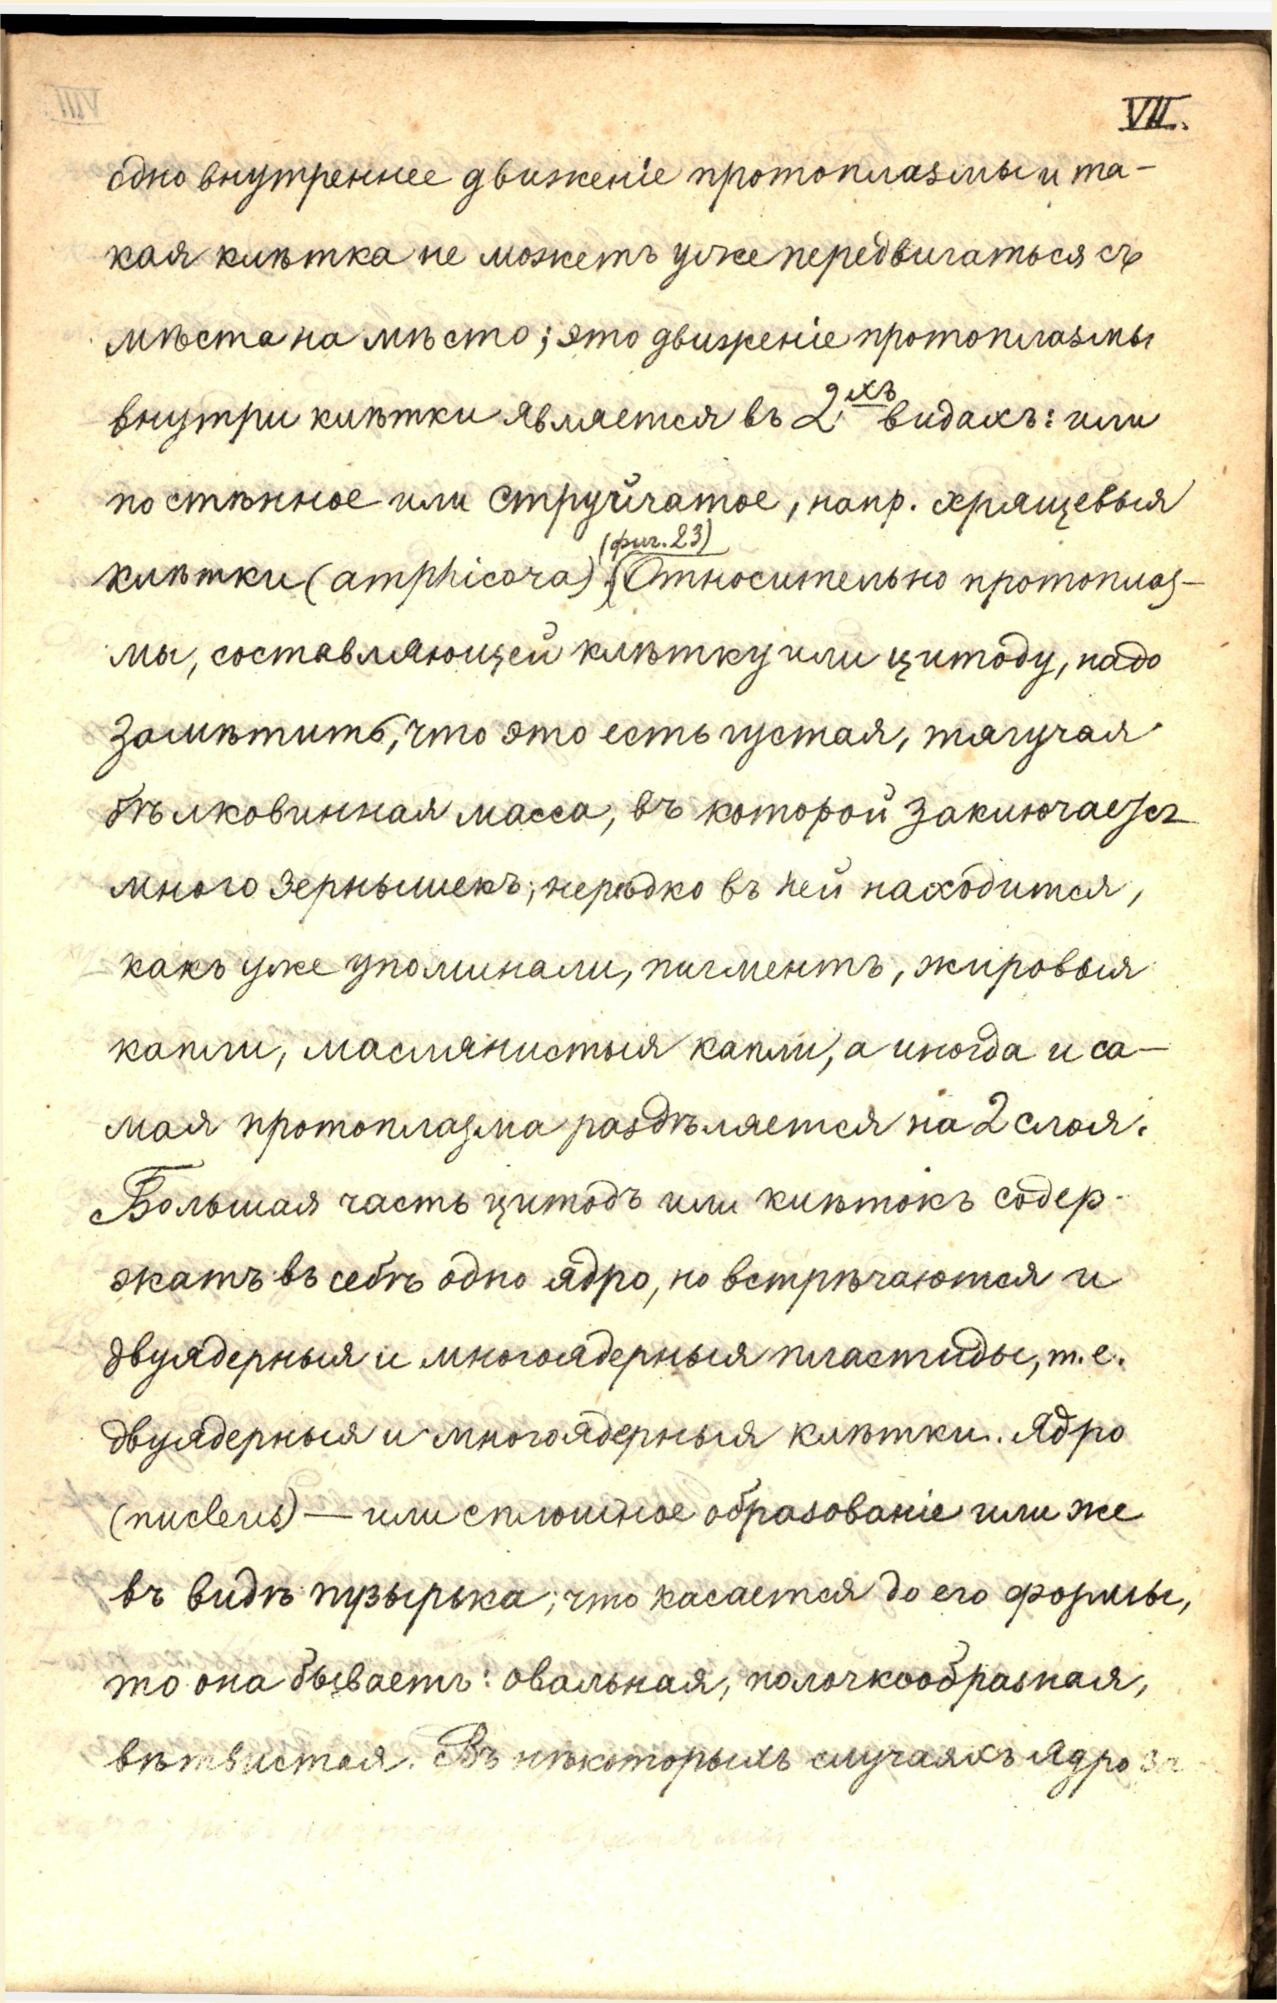 VII.
одно внутреннее движенiе протоплазмы и та-
кая клѣтка не можетъ уже передвигаться съ
мѣста на мѣсто; это движенiе протоплазмы
внутри клѣтки является въ 2хъ видахъ: или
по стѣнное или струйчатое, напр. хрящевыя
(фиг. 23)
клѣтки (amphicora). Относительно протоплаз-
мы, составляющей клѣтку или цитоду, надо
замѣтить, что это есть густая, тягучая
бѣлковинная масса, въ которой заключается
много зернышекъ; нерѣдко въ ней находится,
какъ уже упоминали, пигментъ, жировыя
капли, маслянистыя капли, а иногда и са-
мая протоплазма раздѣляется на 2 слоя.
Большая часть цитодъ или клѣтокъ содер-
жатъ въ себѣ одно ядро, но встрѣчаются и
двуядерныя и многоядерныя пластиды, т.е.
двуядерныя и многоядерныя клѣтки. Ядро
(nucleus) — или сплошное образованiе или же
въ видѣ пузырька; что касается до его формы,
то она бываетъ: овальная, палочкообразная,
вѣтвистая. Въ нѣкоторыхъ случаяхъ ядро